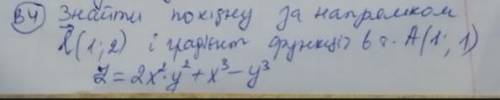 В4 Знайти похідну за напрямком
ℓ(1;2) і градієнт функції в т. A(1; 1)
Z = 2x²·y² + x³ - y³